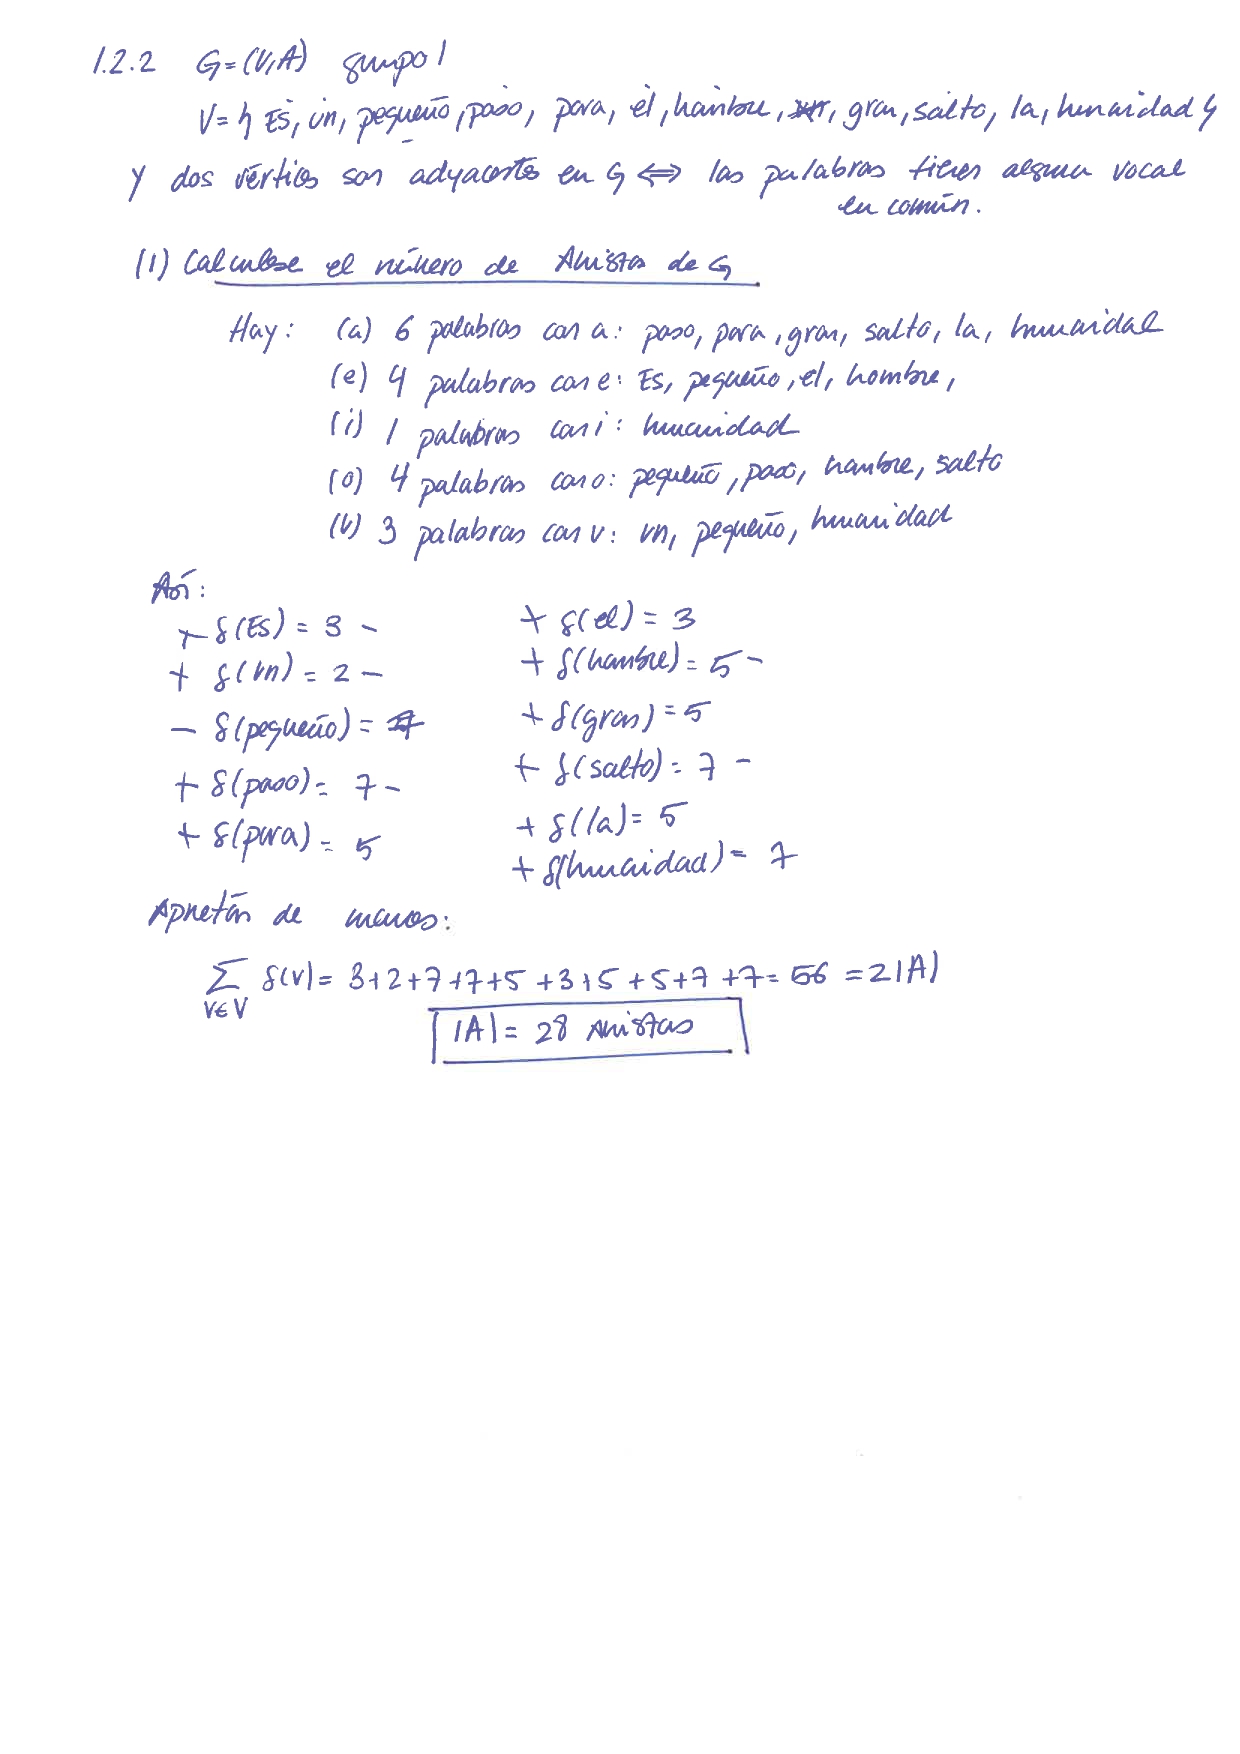 1.2.2 G=(V,A) grupo 1
V={ Es, un, pequeño, paso, para, el, hombre, gran, salto, la, humanidad }
y dos vértices son adyacentes en G ⟺ las palabras tienen alguna vocal
en común.
(1) Calculese el número de Aristas de G
Hay: (a) 6 palabras con a: paso, para, gran, salto, la, humanidad
(e) 4 palabras con e: Es, pequeño, el, hombre,
(i) 1 palabras con i: humanidad
(o) 4 palabras con o: pequeño, paso, hombre, salto
(u) 3 palabras con u: un, pequeño, humanidad
Así:
+ δ(Es) = 3 - + δ(el) = 3
+ δ(un) = 2 - + δ(hombre) = 5 -
- δ(pequeño) = 7 + δ(gran) = 5
+ δ(paso) = 7 - + δ(salto) = 7 -
+ δ(para) = 5 + δ(la) = 5
+ δ(humanidad) = 7
Apretón de manos:
∑ δ(v) = 3+2+7+7+5+3+5+5+7+7 = 56 = 2|A|
v∈V
|A| = 28 Aristas